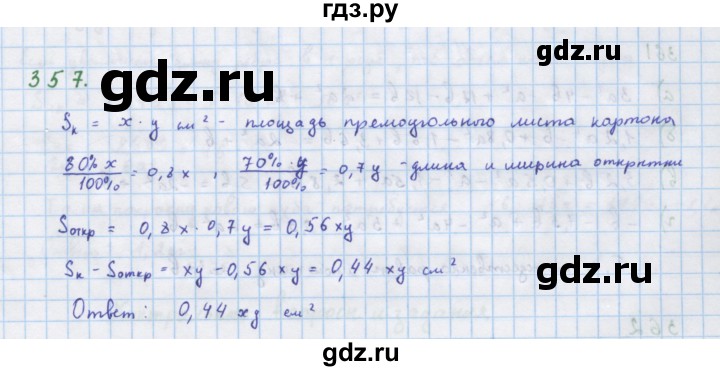 гдз.ру
357. gdz.ru gdz.ru
Sк = x · y см² - площадь прямоугольного листа картона
80% x / 100% = 0,8 x , 70% · y / 100% = 0,7 y - длина и ширина открытки
Sоткр = 0,8 x · 0,7 y = 0,56 xy
gdz.ru
Sк - Sоткр = xy - 0,56 xy = 0,44 xy см²
Ответ: 0,44 xy см²
gdz.ru gdz.ru